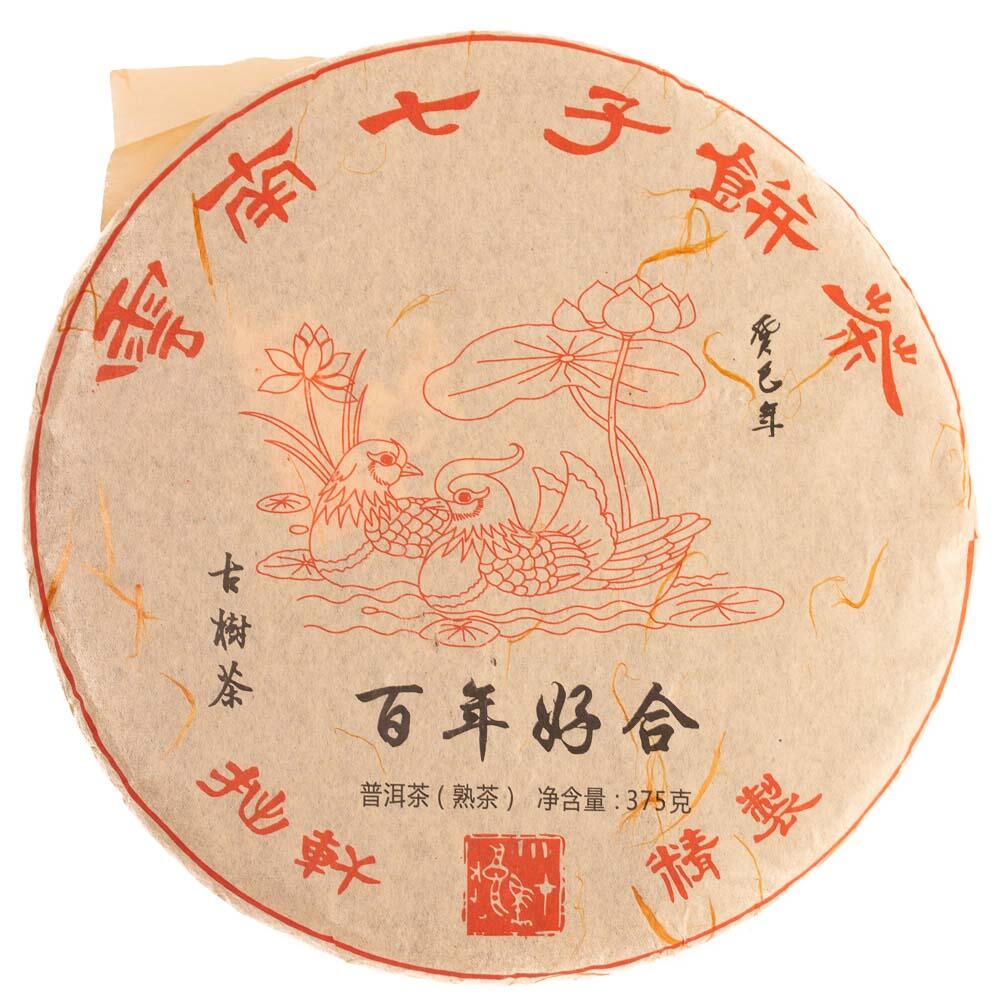 雲南七子餅茶
癸巳年
古樹茶
百年好合
普洱茶(熟茶) 净含量:375克
精製